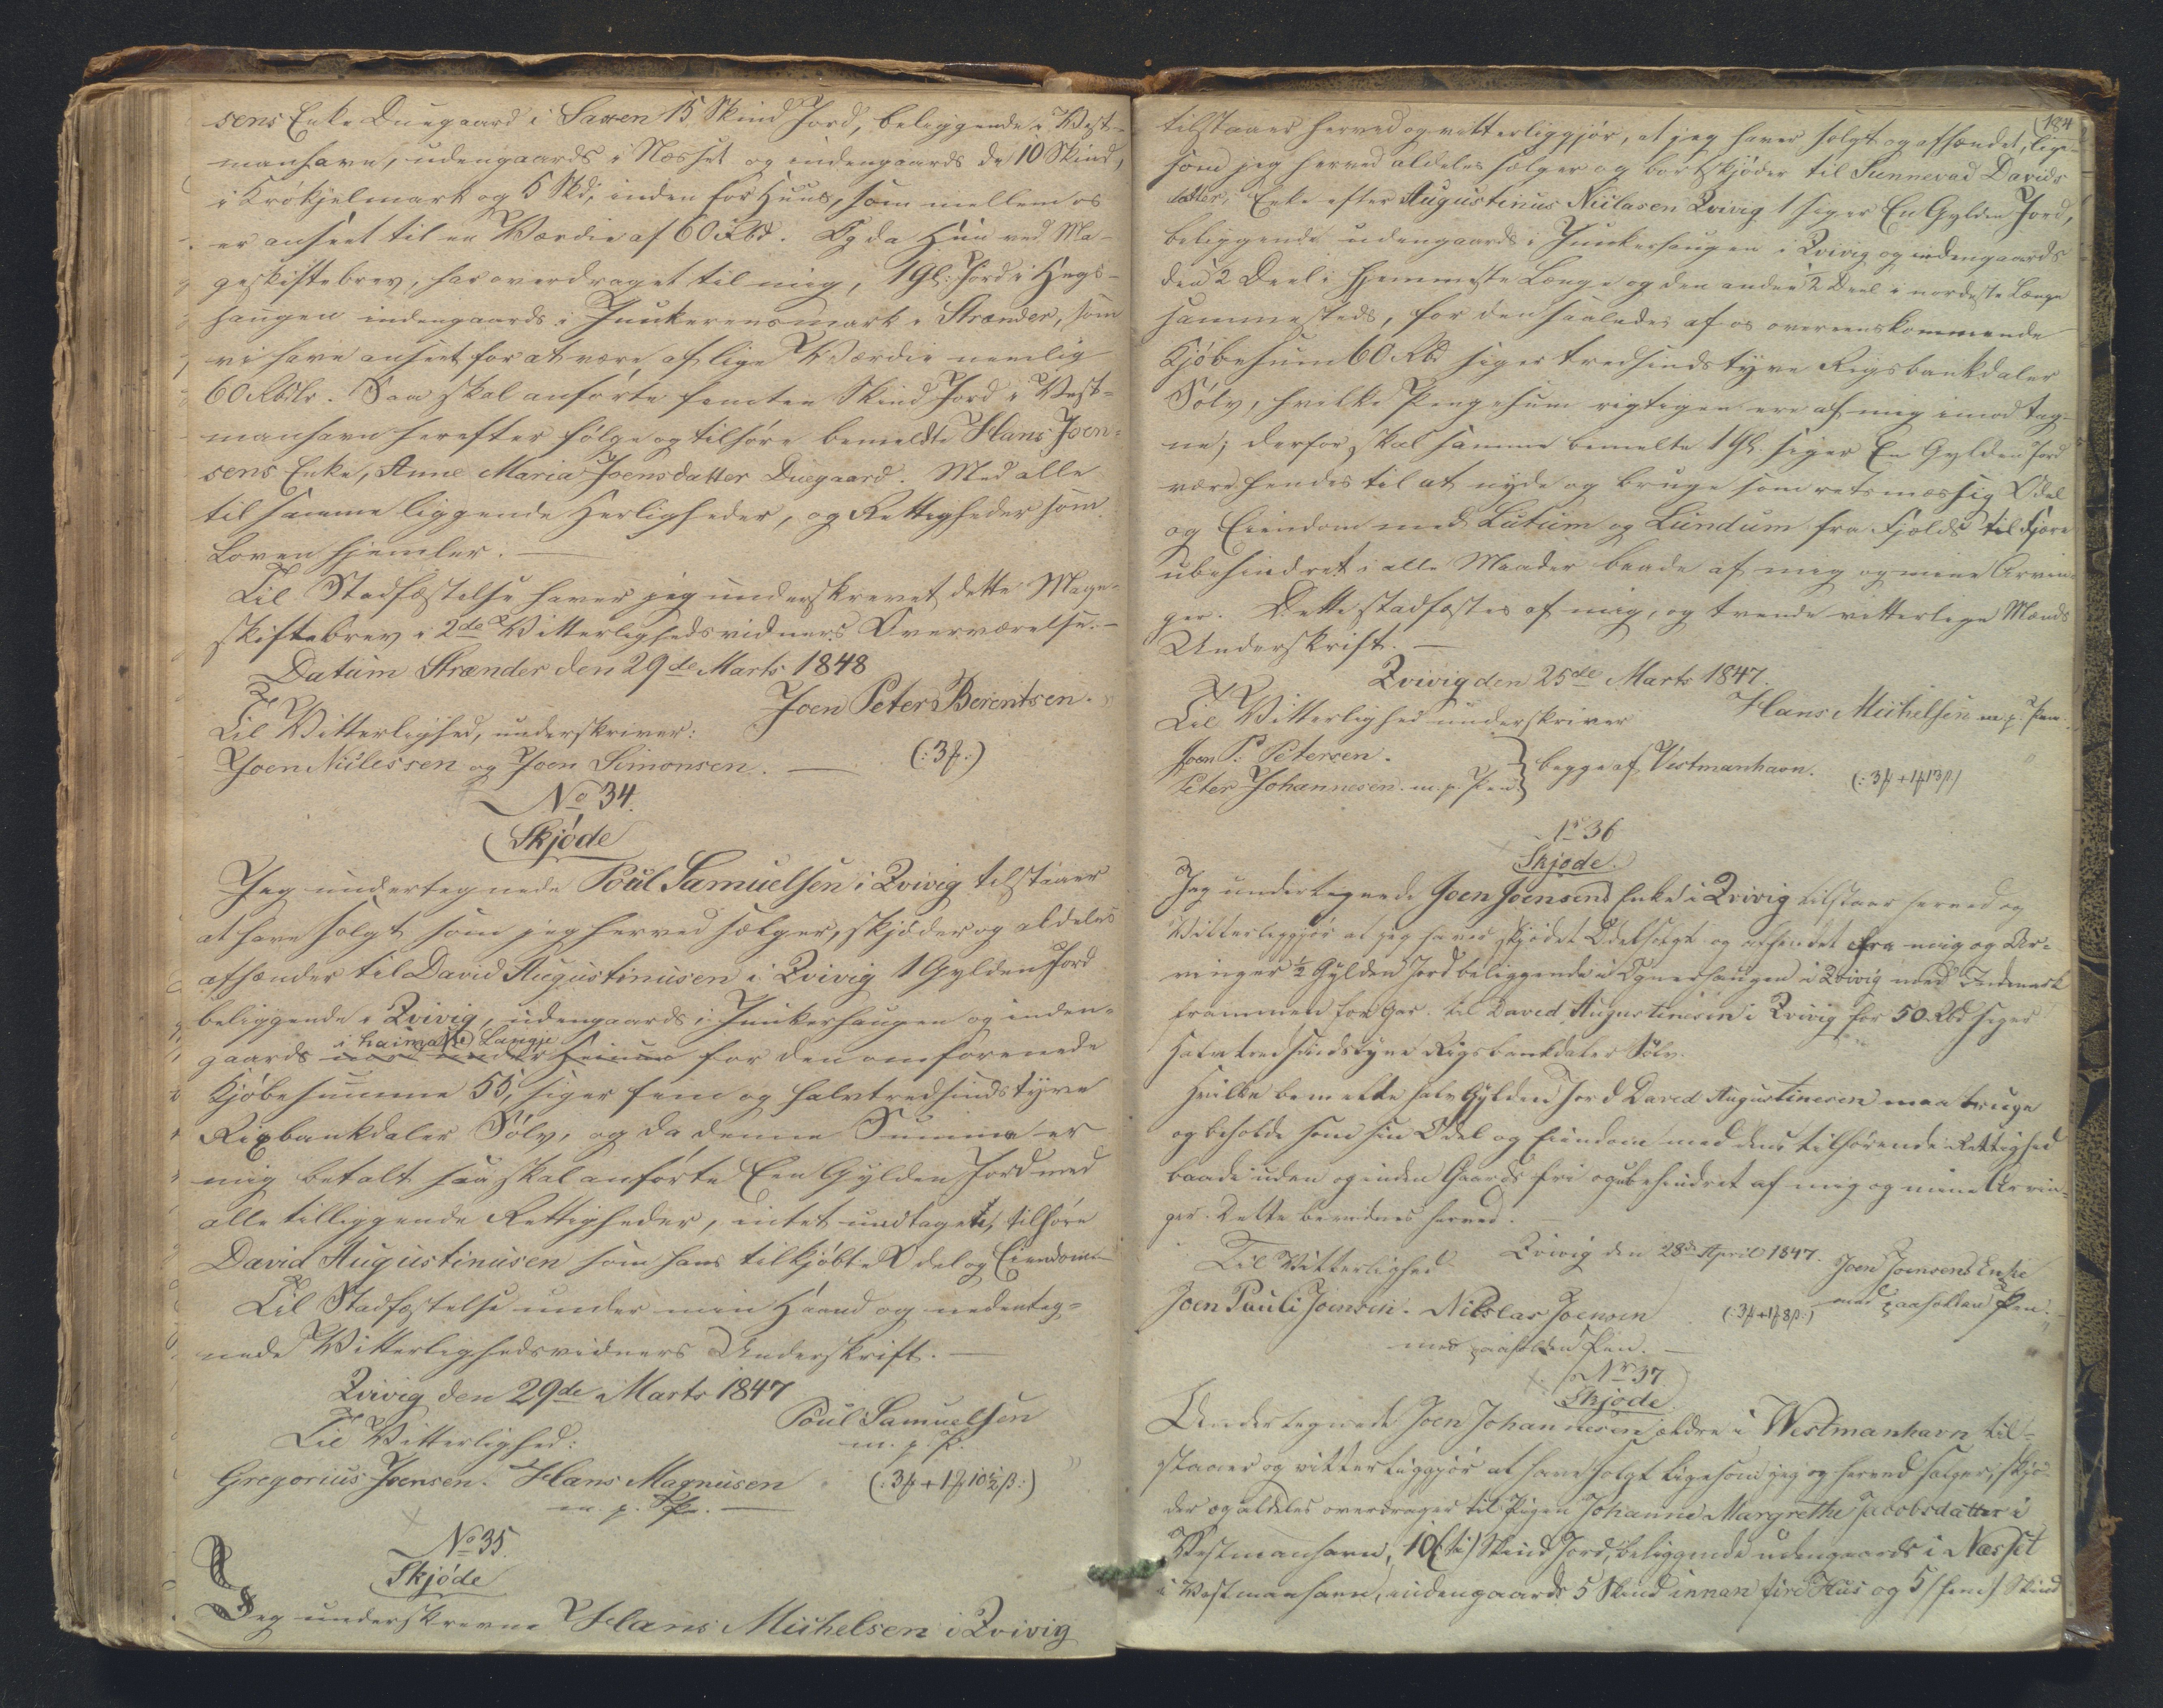 sens Enke Duegaard i Saxen 15 Skind Jord, beliggende i Vest-
manhavn, udengaards i Næsset og indengaards de 10 Skind,
i Krókjelmark og 5 Skd, inden for Huus, som mellem os
er anseet til en Værdie af 60 Rbd. Og da hun ved Ma-
geskiftebrev, har overdraget til mig, 1 Gl: Jord i Hegs-
haugen indengaards i Junkerensmark i Strænder, som
vi have anseet for at være af lige Værdie nemlig
60 Rbdlr. Saa skal anførte femten Skind Jord i Vest-
manhavn herefter følge og tilhøre bemeldte Hans Joen-
sens Enke, Anne Maria Joensdatter Duegaard. Med alle
til samme liggende Herligheder, og Rettigheder som
Loven hjemler.
Til Stadfæstelse haver jeg underskrevet dette Mage-
skiftebrev i 2de Vitterlighedsvidners Overværelse. —
Datum Strænder den 29de Marts 1848
Joen Peter Berentsen.
Til Vitterlighed, underskriver:
Joen Niclessen og Joen Simonsen. — (: 3 ß :)
No 34.
Skjøde
Jeg undertegnede Poul Samuelsen i Qvivig tilstaaer
at have solgt som jeg herved sælger, skjøder og aldeles
afhænder til David Augustinusen i Qvivig 1 Gylden Jord
beliggende i Qvivig, udengaards i Junkerhaugen og inden-
i haimaste Længje
gaards for den omforenede
Kjøbesumme 55, siger fem og halvtredsindstyve
Rigsbankdaler Sølv, og da denne Summa er
mig betalt saa skal anførte Een Gylden Jord med
alle tilliggende Rettigheder, intet undtaget, tilhøre
David Augustinusen som hans tilkjøbte Odel og Eiendom —
Til Stadfæstelse under min Haand og nedenteg-
nede Vitterlighedsvidners Underskrift. —
Qvivig den 29de Marts 1847
Poul Samuelsen
Til Vitterlighed: m. p. P.
Gregorius Joensen. Hans Magnusen (: 3 ß + 1 ß 10½ ß :)
m. p. Pn. —
No 35.
Skjøde
Jeg underskrevne Hans Michelsen i Qvivig
184
tilstaaer herved og vitterliggjør, at jeg haver solgt og afhændet, lige-
som jeg herved aldeles sælger og bortskjøder til Sunnevad Davids
datter, Enke efter Augustinus Niclasen Qvivig 1 siger En Gylden Jord,
beliggende udengaards i Junkerhaugen i Qvivig og indengaards
den ½ Deel i hjemmeste Længe og den anden ½ Deel i nordeste Længe
sammesteds, for den saaledes af os overeenskommende
Kjøbesum 60 Rbd siger tredsindstyve Rigsbankdaler
Sølv, hvilke Pengesum rigtigen ere af mig imodtag-
ne; derfor skal samme bemelte 1 Gl. siger En Gylden Jord
være hendes til at nyde og bruge som retsmæssig Odel
og Eiendom med Lutum og Lundum fra Fjelds til Fjære
ubehindret i alle Maader baade af mig og mine Arvin-
ger. Dette stadfæstes af mig, og tvende vitterlige Mænds
Underskrift. —
Qvivig den 25de Marts 1847.
Til Vitterlighed underskriver Hans Michelsen m. p. Pen.
Joen P: Petersen.
Peter Johannesen. m. p. Pen } begge af Vestmanhavn.
No 36
Skjøde.
Jeg undertegnede Joen Joensens Enke i Qvivig tilstaar herved og
Vitterliggjør at jeg haver skjødet Odelsolgt og afhændet fra mig og Ar-
vinger ½ Gylden Jord beliggende i Ognarhaugen i Qvivig med Indmark
frammen for Gar. til David Augustinusen i Qvivig for 50 Rbd siger
halvtredsindstyve Rigsbankdaler Sølv.
Hvilke bemelte halv Gylden Jord David Augustinesen maa bruge
og beholde som sin Odel og Eiendom med dens tilhørende Rettighed
baade uden og inden Gaards fri og ubehindret af mig og mine Arvin-
ger. Dette bevidnes herved. —
Qvivig den 28de April 1847.
Til Vitterlighed Joen Joensens Enke
Joen Pauli Joensen. Nicklas Joensen (: 3 ß + 1 ß 8 ß :) med paaholden Pen.
med paaholden Pen. —
No 37
Skjøde.
Undertegnede Joen Johannesen ældre i Westmanhavn til-
staaer og vitterliggjør at have solgt ligesom jeg og herved sælger, skjø-
der og aldeles overdrager til Pigen Johanne Margrethe Jacobsdatter i
Vestmanhavn, 10 (ti) Skind Jord, beliggende udengaards i Næsset
i Vestmanhavn, indengaards 5 Skind innan firi Hús og 5 (fem) Skind